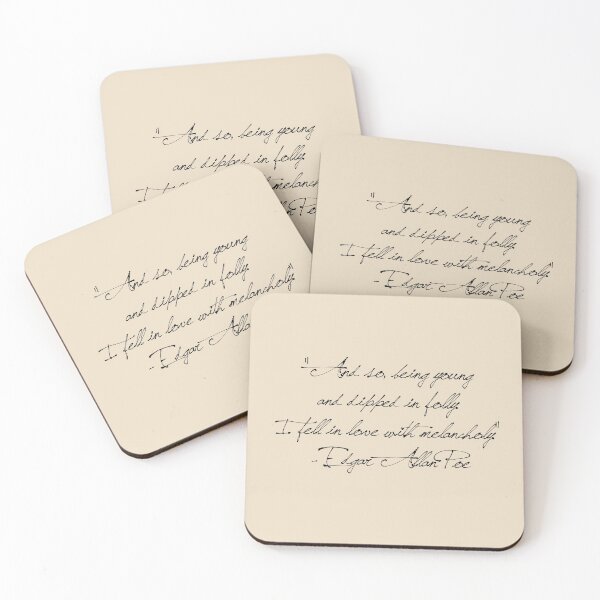 "And so, being young
and dipped in folly.
I with
Poe
"And so, being young
and dipped in folly.
I fell in love with melancholy"
-Edgar Allan Poe
"And so, being young
and dipped in folly.
I fell in love with melancholy"
-Edgar
"And so, being young
and dipped in folly.
I fell in love with melancholy"
-Edgar Allan Poe